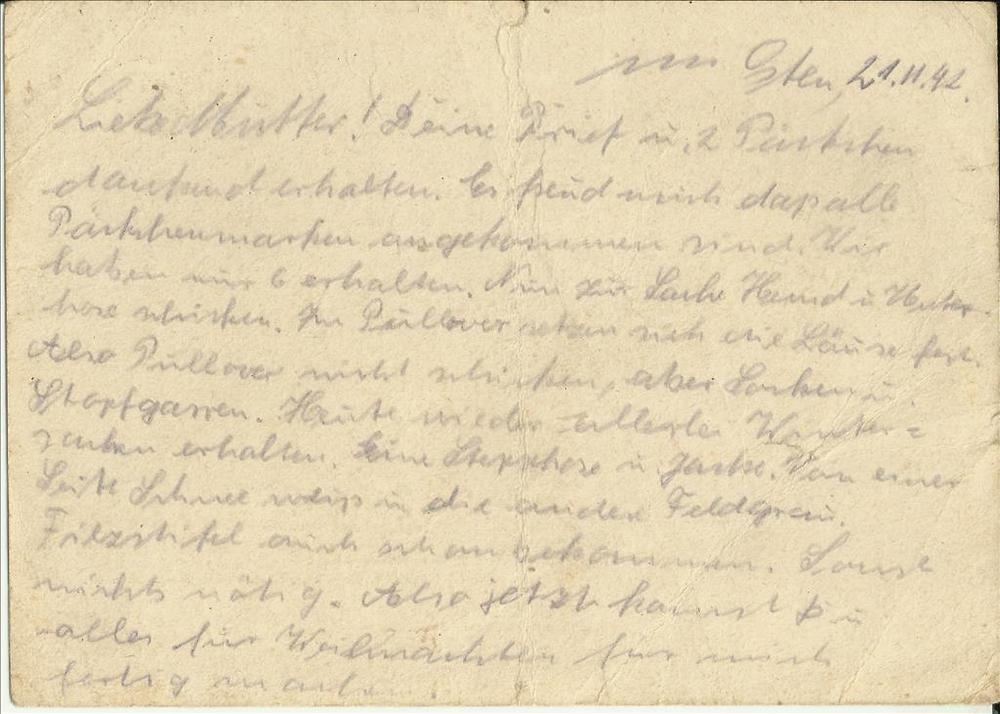 im Osten, 21.11.42.
Liebe Mutter! Deine Brief u. 2 Päckchen
dankend erhalten. Es freud mich daß alle
Päckchenmarken angekommen sind. Wir
haben nur 6 erhalten. Nun zur Sache Hemd u. Unter-
hose schicken. Im Pullover setzen sich die Läuse fest.
Also Pullover nicht schicken, aber Socken u.
Stopfgarren. Heute wieder allerlei Winter=
sachen erhalten. Eine Stepphose u. Jacke. Von einer
Seite Schnee weiß u die andere Feldgrau.
Filzstifel auch schon gekommen. Sonst
nichts nötig. Also jetzt kannst Du
alles für Weihnachten für mich
fertig machen.